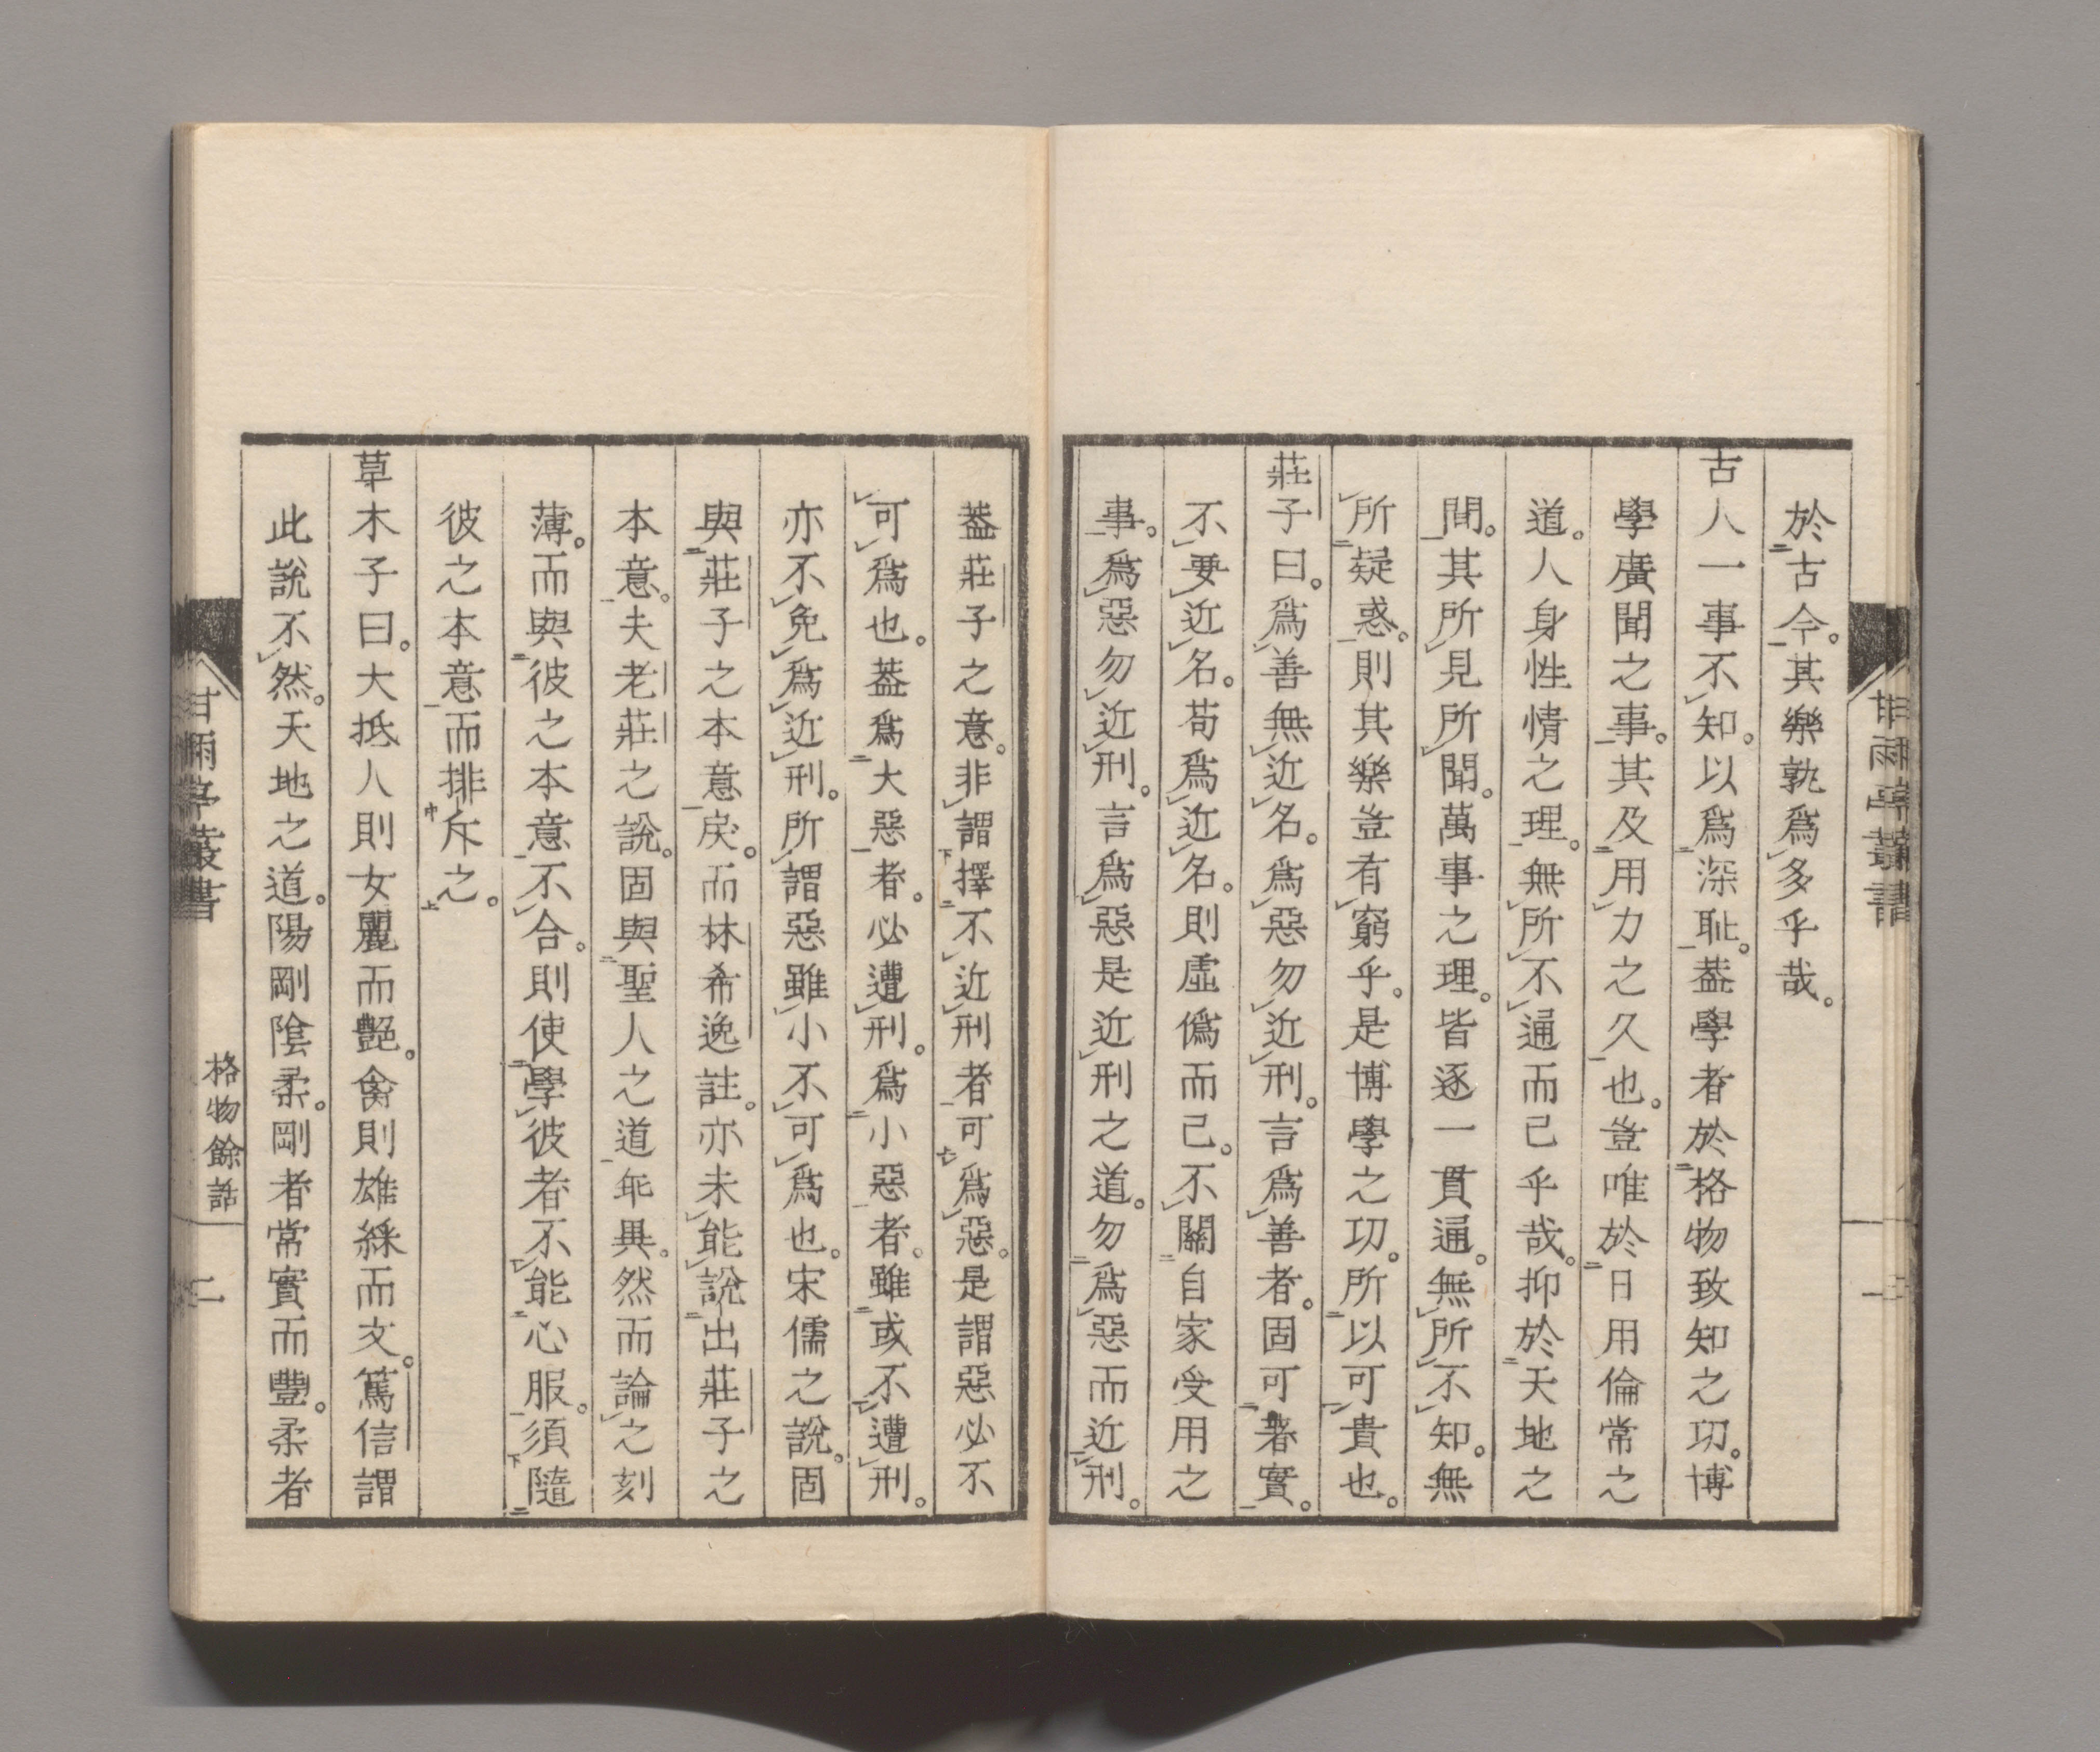 於古今。其樂孰爲多乎哉。
古人一事不知。以爲深耻。葢學者於格物致知之功。博
學廣聞之事。其及用力之久也。豈唯於日用倫常之
道。人身性情之理。無所不通而已乎哉。抑於天地之
間。其所見所聞。萬事之理。皆逐一貫通。無所不知。無
所疑惑。則其樂豈有窮乎。是博學之功。所以可貴也。
莊子曰。爲善無近名。爲惡勿近刑。言爲善者。固可著實。
不要近名。苟爲近名。則虛僞而已。不關自家受用之
事。爲惡勿近刑。言爲惡是近刑之道。勿爲惡而近刑。
葢莊子之意。非謂擇不近刑者可爲惡。是謂惡必不
可爲也。葢爲大惡者。必遭刑。爲小惡者。雖或不遭刑。
亦不免爲近刑。所謂惡雖小不可爲也。宋儒之說。固
與莊子之本意戾。而林希逸註。亦未能說出莊子之
本意。夫老莊之說。固與聖人之道乖異。然而論之刻
薄。而與彼之本意不合。則使學彼者不能心服。須隨
彼之本意而排斥之。
草木子曰。大抵人則女麗而艷。禽則雄綵而文。篤信謂
此說不然。天地之道。陽剛陰柔。剛者常實而豐。柔者
甘雨亭叢書
格物餘話
二